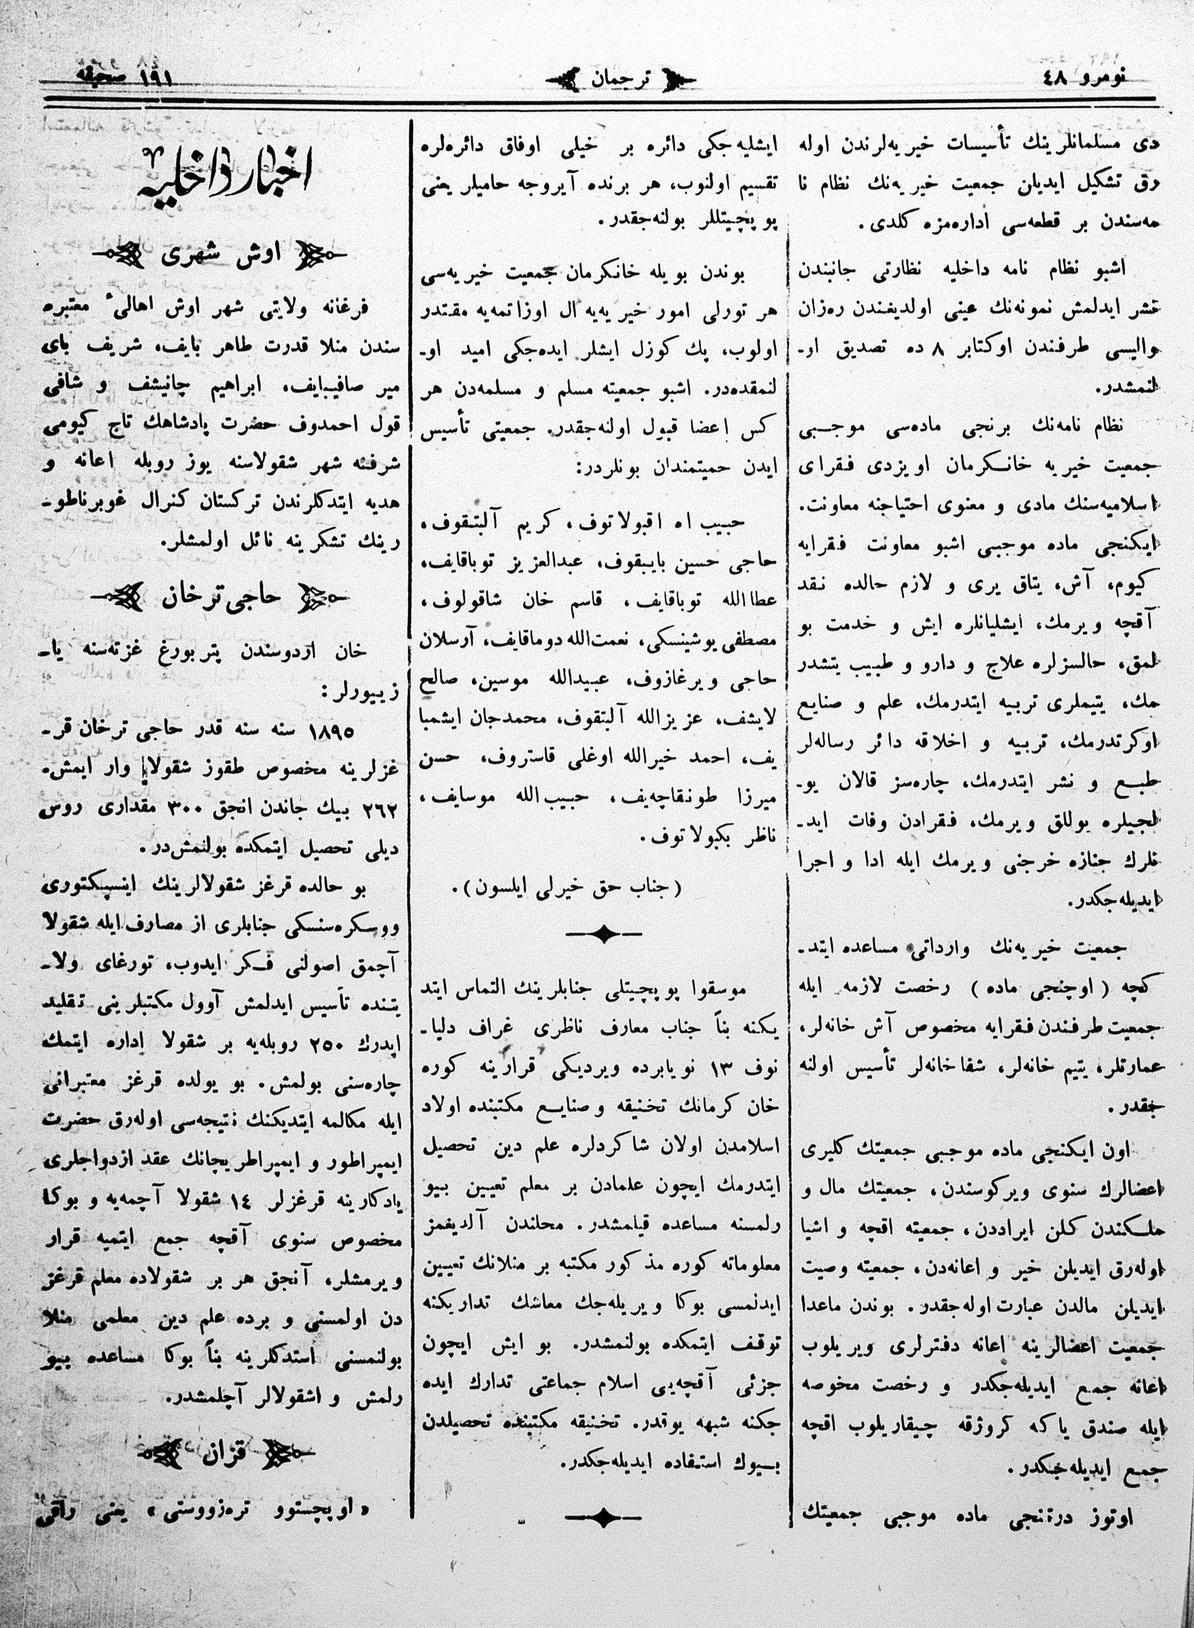 نومرو ٤٨
ترجمان
١٩١ صحیفه
دی مسلمانلرینك تأسیسات خیریه‌لرندن اوله
رق تشکیل ایدیلن جمعیت خیریه‌نك نظام نا
مه‌سندن بر قطعه‌سی اداره‌مزه کلدی.
اشبو نظام نامه داخلیه نظارتی جانبندن
نشر ایدلمش نمونه‌نك عینی اولدیغندن ره‌زان
والیسی طرفندن اوکتابر ٨ ده تصدیق او-
لنمشدر.
نظام نامه‌نك برنجی ماده‌سی موجبی
جمعیت خیریه خانکرمان اویزدی فقرای
اسلامیه‌سنك مادی و معنوی احتیاجنه معاونت.
ایکنجی ماده موجبی اشبو معاونت فقرایه
کیوم، آش، یتاق یری و لازم حالده نقد
آقچه ویرمك، ایشلیانلره ایش و خدمت بو
لمق، حالسزلره علاج و دارو و طبیب یتشدر
مك، یتیملری تربیه ایتدرمك، علم و صنایع
اوکرتدرمك، تربیه و اخلاقه دائر رساله‌لر
طبع و نشر ایتدرمك، چاره‌سز قالان یو-
لجیلره یوللق ویرمك، فقرادن وفات اید-
نلرك جنازه خرجنی ویرمك ایله ادا و اجرا
ایدیله‌جکدر.
جمعیت خیریه‌نك وارداتی مساعده ایتد-
کچه (اوچنجی ماده) رخصت لازمه ایله
جمعیت طرفندن فقرایه مخصوص آش خانه‌لر،
عمارتلر، یتیم خانه‌لر، شفاخانه‌لر تأسیس اولنه
جقدر.
اون ایکنجی ماده موجبی جمعیتك کلیری
اعضالرك سنوی ویرکوسندن، جمعیتك مال و
ملکندن کلن ایراددن، جمعیته اقچه و اشیا
اوله‌رق ایدیلن خیر و اعانه‌دن، جمعیته وصیت
ایدیلن مالدن عبارت اوله‌جقدر. بوندن ماعدا
جمعیت اعضالرینه اعانه دفترلری ویریلوب
اعانه جمع ایدیله‌جکدر و رخصت مخوصه
ایله صندق یاکه کروژقه چیقاریلوب اقچه
جمع ایدیله‌جکدر.
اوتوز درتنجی ماده موجبی جمعیتك
ایشلیه‌جکی دائره بر خیلی اوفاق دائره‌لره
تقسیم اولنوب، هر برنده آیروجه حامیلر یعنی
پوپچیتللر بولنه‌جقدر.
بوندن بویله خانکرمان جمعیت خیریه‌سی
هر تورلی امور خیریه‌یه ال اوزاتمه‌یه مقتدر
اولوب، پك کوزل ایشلر ایده‌جکی امید او-
لنمقده‌در. اشبو جمعیته مسلم و مسلمه‌دن هر
کس اعضا قبول اولنه‌جقدر. جمعیتی تأسیس
ایدن حمیتمندان بونلردر:
حبیب اه اقبولاتوف، کریم آلبتقوف،
حاجی حسین بایبقوف، عبدالعزیز توباقایف،
عطاالله توباقایف، قاسم خان شاقولوف،
مصطفی یوشینسکی، نعمت‌الله دوماقایف، آرسلان
حاجی ویرغازوف، عبیدالله موسین، صالح
لایشف، عزیزالله آلبتقوف، محمدجان ایشمبا
یف، احمد خیرالله اوغلی قاستروف، حسن
میرزا طونقاچه‌یف، حبیب‌الله موسایف،
ناظر بکبولاتوف.
(جناب حق خیرلی ایلسون).
موسقوا پوپچیتلی جنابلرینك التماس ایتد
یکنه بنأ جناب معارف ناظری غراف دلیا-
نوف ١٣ نویابرده ویردیکی قرارینه کوره
خان کرمانك تخنیقه و صنایع مکتبنده اولاد
اسلامدن اولان شاکردلره علم دین تحصیل
ایتدرمك ایچون علمادن بر معلم تعیین بیو
رلمسنه مساعده قیلمشدر. محلندن آلدیغمز
معلوماته کوره مذکور مکتبه بر منلانك تعیین
ایدلمسی بوکا ویریله‌جك معاشك تداریکنه
توقف ایتمکده بولنمشدر. بو ایش ایچون
جزئی آقچه‌یی اسلام جماعتی تدارك ایده
جکنه شبهه یوقدر. تخنیقه مکتبنده تحصیلدن
بیوك استفاده ایدیله‌جکدر.
اخبار داخلیه
اوش شهری
فرغانه ولایتی شهر اوش اهالیٔ معتبره
سندن منلا قدرت طاهر بایف، شریف بای
میر صافیبایف، ابراهیم چانیشف و شافی
قول احمدوف حضرت پادشاهك تاج کیومی
شرفنه شهر شقولاسنه یوز روبله اعانه و
هدیه ایتدکلرندن ترکستان کنرال غوبرناطو-
رینك تشکرینه نائل اولمشلر.
حاجی ترخان
خان اردوسندن پتربورغ غزته‌سنه یا-
زییورلر:
١٨٩٥ سنه سنه قدر حاجی ترخان قر-
غزلرینه مخصوص طقوز شقولا وار ایمش.
٢٦٢ بیك جاندن انجق ٣٠٠ مقداری روس
دیلی تحصیل ایتمکده بولنمش‌در.
بو حالده قرغز شقولالرینك اینسپکتوری
ووسکره‌سنسکی جنابلری از مصارف ایله شقولا
آچمق اصولنی فکر ایدوب، تورغای ولا-
یتنده تأسیس ایدلمش آوول مکتبلرینی تقلید
ایدرك ٢٥٠ روبله‌یه بر شقولا اداره ایتمك
چاره‌سنی بولمش. بو یولده قرغز معتبرانی
ایله مکالمه ایتدیکنك نتیجه‌سی اوله‌رق حضرت
ایمپراطور و ایمپراطریجانك عقد ازدواجلری
یادکارینه قرغزلر ١٤ شقولا آچمه‌یه و بوکا
مخصوص سنوی آقچه جمع ایتمیه قرار
ویرمشلر، آنجق هر بر شقولاده معلم قرغز
دن اولمسنی و برده علم دین معلمی منلا
بولنمسنی استدکلرینه بنأ بوکا مساعده بیو
رلمش و اشقولالر آچلمشدر.
قزان
«اوپچستوو تره‌زووستی» یعنی راقی